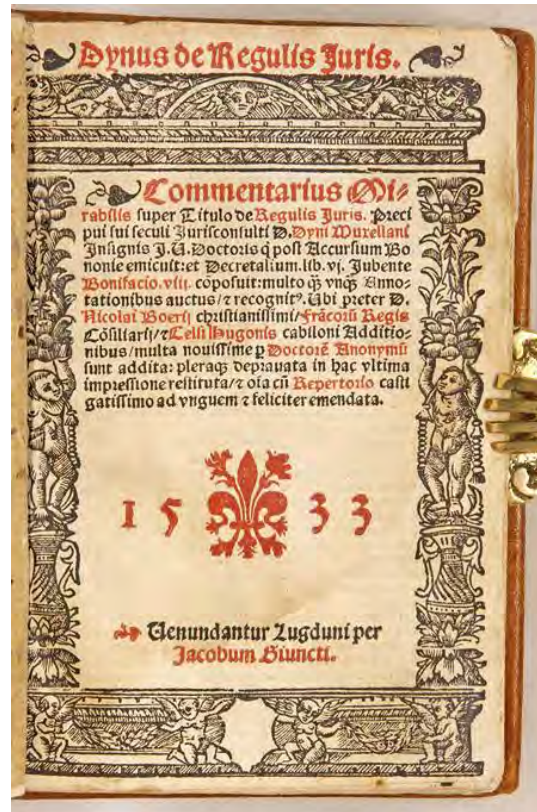 Dynus de Regulis Juris.
Commentarius Mi-
rabilis super Titulo de Regulis Juris. Preci
pui sui seculi Jurisconsulti D. Dyni Muxellani
Insignis J.U. Doctoris q̇ post Accursium Bo
nonie emicuit: et Decretalium. lib. vj. Jubente
Bonifacio. viij. cōposuit: multo q̄ȝ vnq̄ȝ Anno-
tationibus auctus / ⁊ recognitꝰ. Ubi preter D.
Nicolai Boerij christianissimi / frācorū Regis
Cōsiliarij / ⁊ Celsi Hugonis cabiloni Additio-
nibus / multa nouissime ꝑ Doctorē Anonymū
sunt addita: pleraqȝ deprauata in hac vltima
impressione restituta / ⁊ oīa cū Repertorio casti
gatissimo ad vnguem ⁊ feliciter emendata.
1 5 3 3
Uenundantur Lugduni per
Jacobum Giuncti.